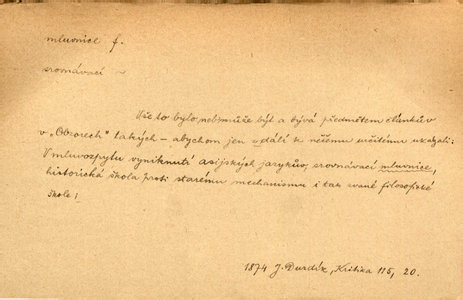 mluvnice f.
srovnávací ~
Vše to bylo nebo může být a bývá předmětem článkův
v „Obzorech" takých – abychom jen z dáli k něčemu určitému ukázali:
V mluvozpytu vyniknutí asijských jazykův, srovnávací mluvnice,
historická škola proti starému mechanismu i tak zvané filosofické
škole!
1874 J. Durdík, Kritika 115, 20.